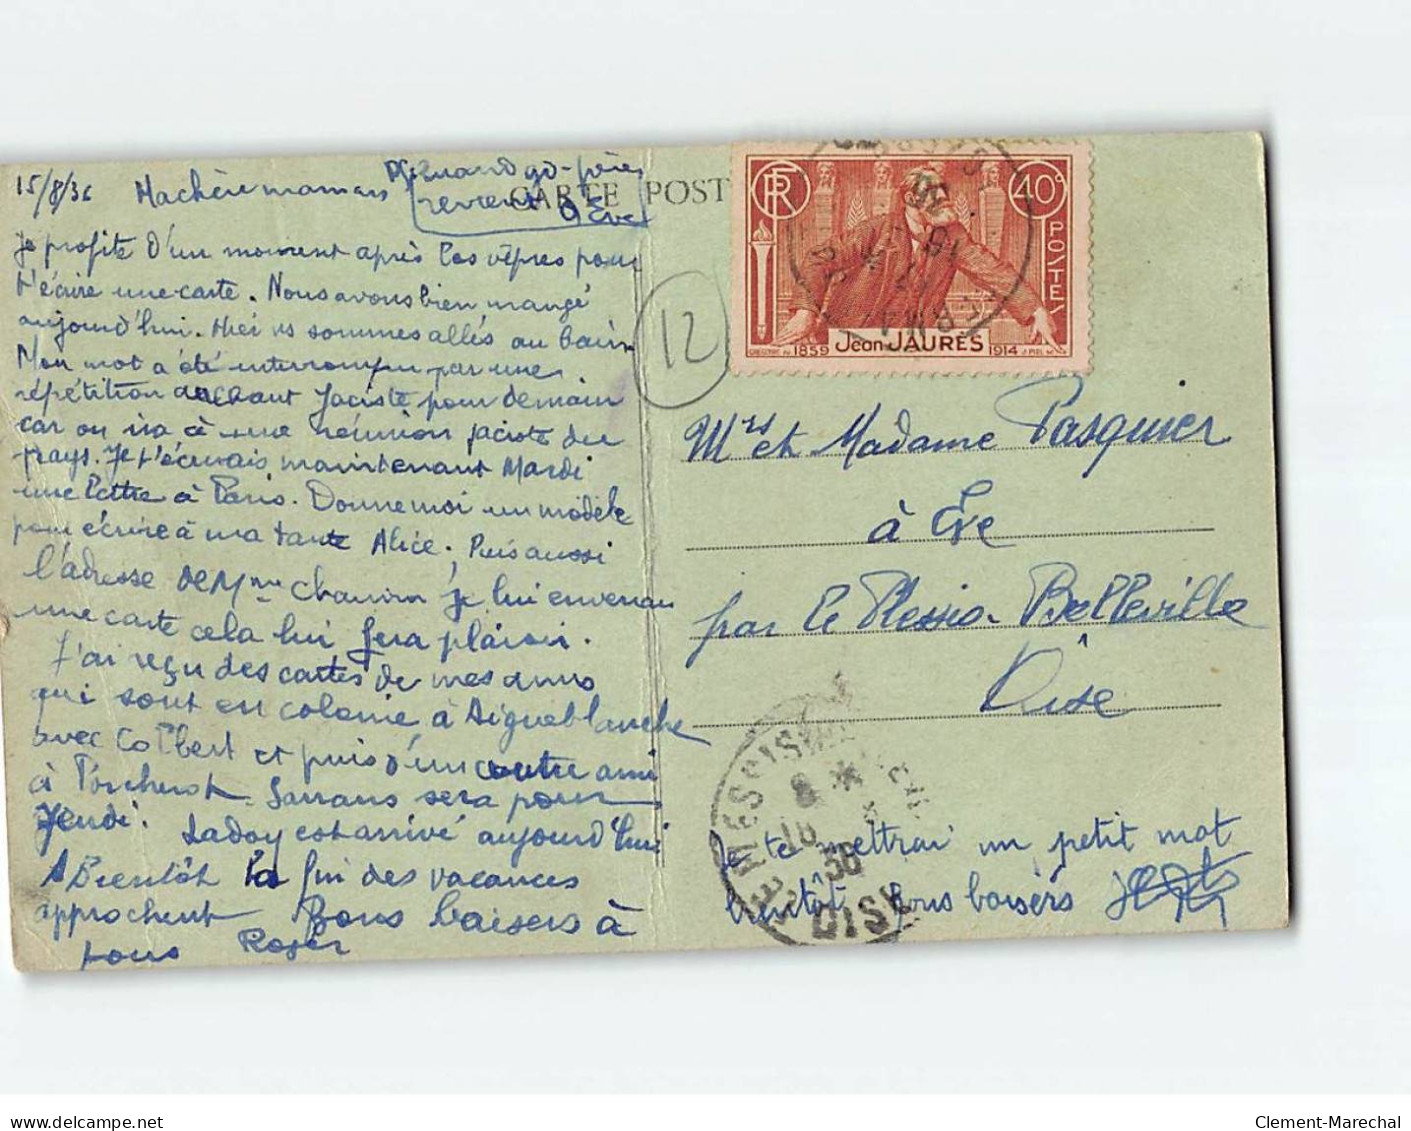 15/8/36 Ma chère maman
revient d'Eve
CARTE POST
Je profite d'un moment après les vêpres pour
t'écrire une carte. Nous avons bien mangé
aujourd'hui. Hier ns sommes allés au bain
Mon mot a été interrompu par une
répétition du chant Jaciste pour demain
car on ira à une réunion jaciste du
pays. Je t'écrirais maintenant Mardi
une lettre à Paris. Donne moi un modèle
pour écrire à ma tante Alice. Puis aussi
l'adresse de Mme je lui enverrai
une carte cela lui fera plaisir.
J'ai reçu des cartes de mes amis
qui sont en colonie à Aigueblanche
avec Colbert et puis d'un autre ami
à sera pour
Jeudi. est arrivé aujourd'hui
A Bientôt la fin des vacances
approchent Bons baisers à
tous Roger
12
RF
40c
POSTES
1859 Jean JAURÈS 1914
Mrs et Madame Pasquier
à Eve
par le Plessis-Belleville
Oise
8 H
18
36
OISE
Je te mettrai un petit mot
bientôt bons baisers
Clement-Marechal